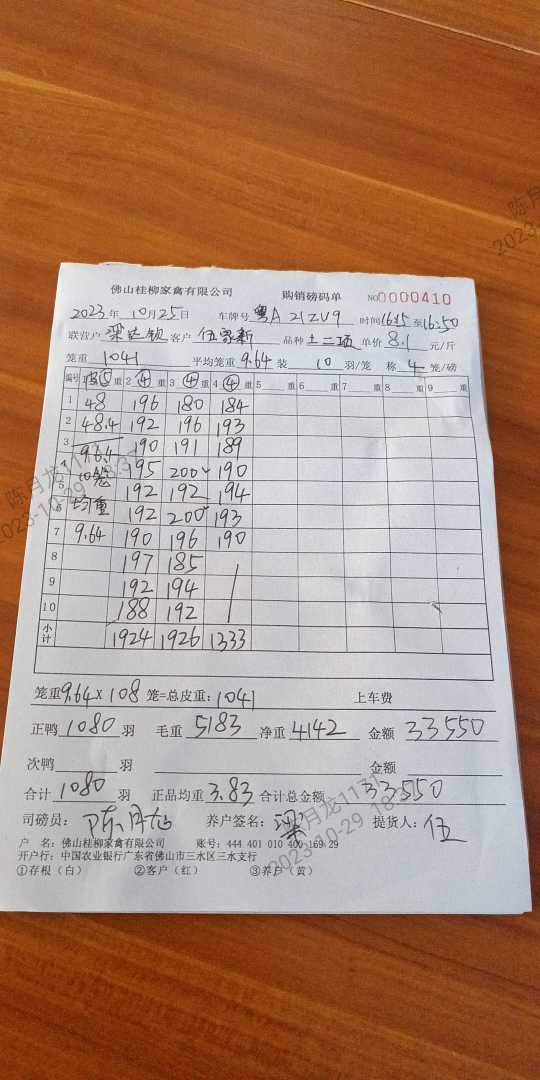 佛山桂柳家禽有限公司 购销磅码单 NO0000410
2023年10月25日 车牌号 粤A 21ZU9 时间16:15至16:50
联营户 客户 伍家新 品种 土二项 单价 8.1 元/斤
笼重 1041 平均笼重 9.64 装 10 羽/笼 称 4 笼/磅
编号 1 ⑤ 重 2 ④ 重 3 ④ 重 4 ④ 重 5 重 6 重 7 重 8 重 9 重
1 48 196 180 184
2 48.4 192 196 193
3 190 191 189
4 96.4 195 200 190
5 10笼 192 192 194
6 均重 192 200 193
7 9.64 190 196 190
8 197 185
9 192 194
10 188 192
小计 1924 1926 1333
笼重9.64×108笼=总皮重:1041 上车费
正鸭 1080 羽 毛重 5183 净重 4142 金额 33550
次鸭 羽 金额
合计 1080 羽 正品均重 3.83 合计总金额 33550
司磅员: 陈月龙 养户签名: 梁 提货人: 伍
户 名: 佛山桂柳家禽有限公司 账号: 444 401 010 400 169 29
开户行: 中国农业银行广东省佛山市三水区三水支行
①存根(白) ②客户(红) ③养户(黄)
陈月龙1131
2023-10-29